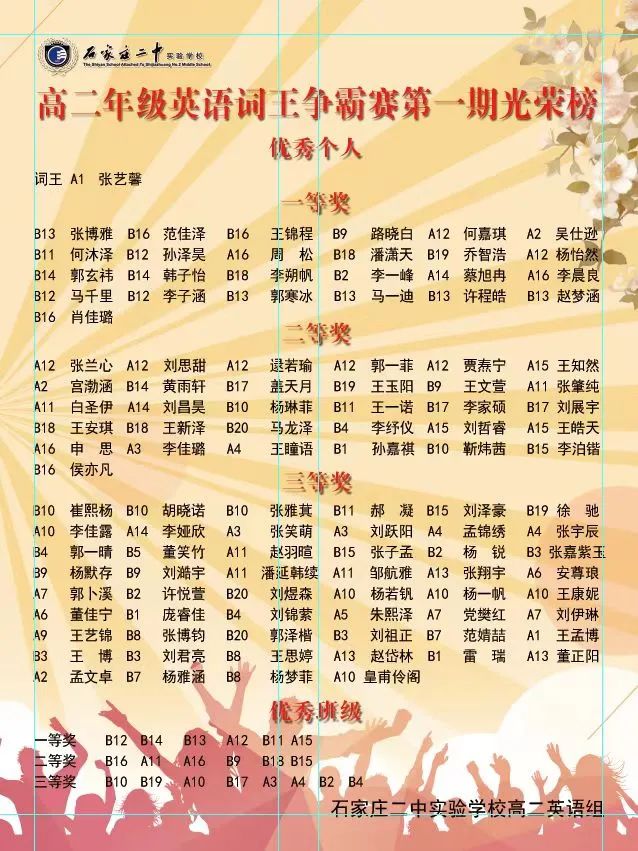 石家庄二中实验学校
The Shiyan School Attached To Shijiazhuang No.2 Middle School
高二年级英语词王争霸赛第一期光荣榜
优秀个人
词王 A1 张艺馨
一等奖
B13 张博雅 B16 范佳泽 B16 王锦程 B9 路晓白 A12 何嘉琪 A2 吴仕逊
B11 何沐泽 B12 孙泽昊 A16 周 松 B18 潘潇天 B19 乔智浩 A12 杨怡然
B14 郭玄祎 B14 韩子怡 B18 李朔帆 B2 李一峰 A14 蔡旭冉 A16 李晨良
B12 马千里 B12 李子涵 B13 郭寒冰 B13 马一迪 B13 许程皓 B13 赵梦涵
B16 肖佳璐
二等奖
A12 张兰心 A12 刘思甜 A12 逯若瑜 A12 郭一菲 A12 贾焘宁 A15 王知然
A2 宫渤涵 B14 黄雨轩 B17 盖天月 B19 王玉阳 B9 王文萱 A11 张肇纯
A11 白圣伊 A14 刘昌昊 B10 杨琳菲 B11 王一诺 B17 李家硕 B17 刘展宇
B18 王安琪 B18 王新泽 B20 马龙泽 B4 李纾仪 A15 刘哲睿 A15 王皓天
A16 申 思 A3 李佳璐 A4 王瞳语 B1 孙嘉祺 B10 靳炜茜 B15 李泊锴
B16 侯亦凡
三等奖
B10 崔熙杨 B10 胡晓诺 B10 张雅萁 B11 郝 凝 B15 刘泽豪 B19 徐 驰
A10 李佳露 A14 李娅欣 A3 张笑萌 A3 刘跃阳 A4 孟锦绣 A4 张宇辰
B4 郭一晴 B5 董笑竹 A11 赵羽暄 B15 张子孟 B2 杨 锐 B3 张嘉紫玉
B9 杨默存 B9 刘澔宇 A11 潘延韩续 A11 邹航雅 A13 张翔宇 A6 安尊琅
A7 郭卜溪 B2 许悦萱 B20 刘煜森 A10 杨若钒 A10 杨一帆 A10 王康妮
A6 董佳宁 B1 庞睿佳 B4 刘锦萦 A5 朱熙泽 A7 党樊红 A7 刘伊琳
A9 王艺锦 B8 张博钧 B20 郭泽楷 B3 刘祖正 B7 范婧喆 A1 王孟博
B3 王 博 B3 刘君亮 B8 王思婷 A13 赵岱林 B1 雷 瑞 A13 董正阳
A2 孟文卓 B7 杨雅涵 B8 杨梦菲 A10 皇甫伶阁
优秀班级
一等奖 B12 B14 B13 A12 B11 A15
二等奖 B16 A11 A16 B9 B18 B15
三等奖 B10 B19 A10 B17 A3 A4 B2 B4
石家庄二中实验学校高二英语组